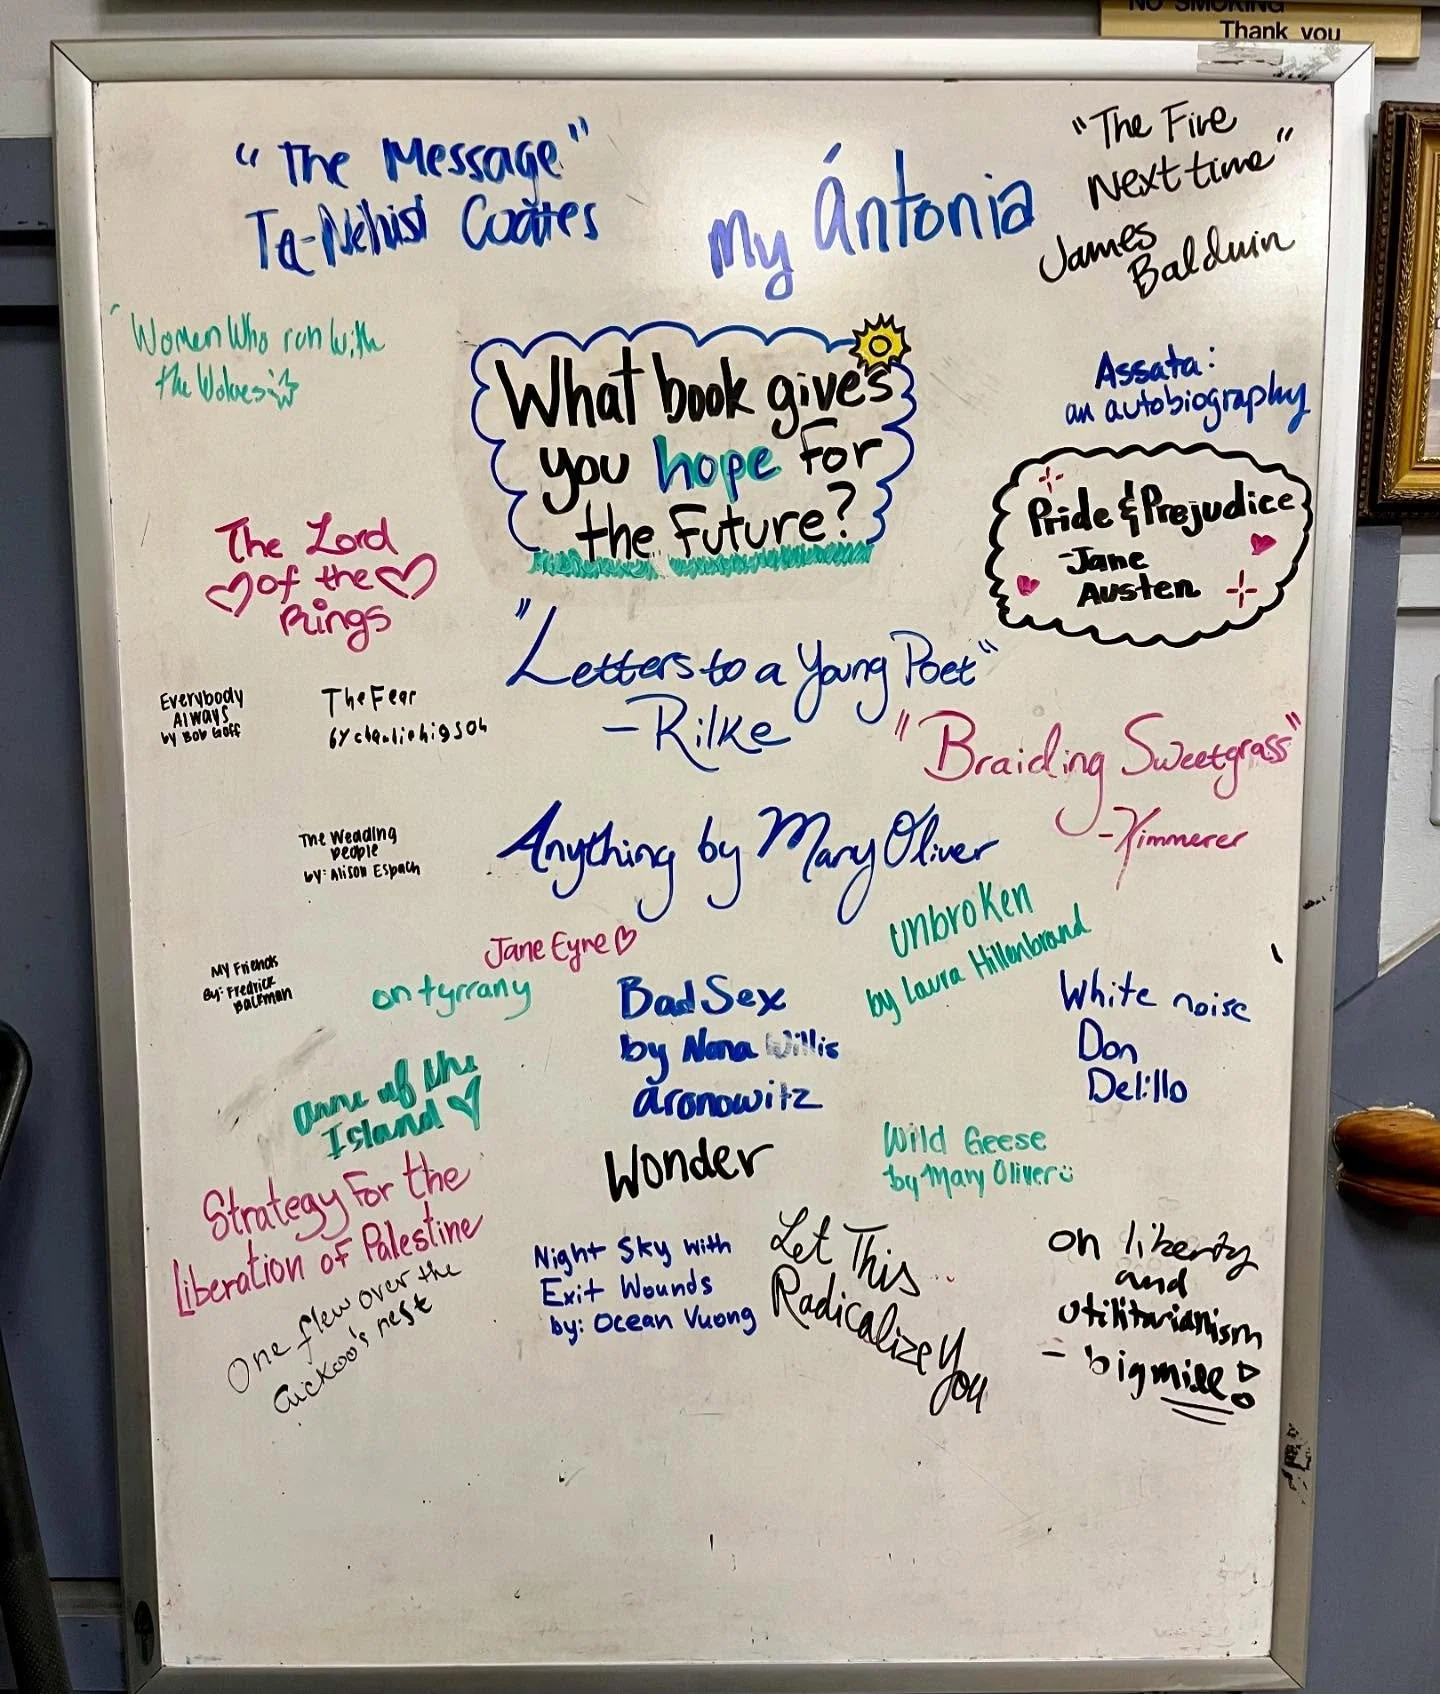 NO SMOKING
Thank you
"The Message"
Ta-Nehisi Coates
My Ántonia
"The Fire
Next time"
James
Baldwin
Women Who run with
the Wolves
What book gives
you hope for
the Future?
Assata:
an autobiography
Pride & Prejudice
-Jane
Austen
The Lord
of the
Rings
"Letters to a Young Poet"
- Rilke
Everybody
Always
by Bob Goff
The Fear
by charlie higson
"Braiding Sweetgrass"
- Kimmerer
The Wedding
people
by: Alison Espach
Anything by Mary Oliver
unbroken
by Laura Hillenbrand
Jane Eyre
My Friends
By: Fredrick
Backman
on tyrrany
Bad Sex
by Nona Willis
aronowitz
White noise
Don
Delillo
anne of the
Island
Wonder
Wild Geese
by Mary Oliver
Strategy For the
Liberation of Palestine
One flew over the
Cuckoo's nest
Night Sky with
Exit Wounds
by: Ocean Vuong
Let This
Radicalize You
on liberty
and
utilitarianism
- big mill!